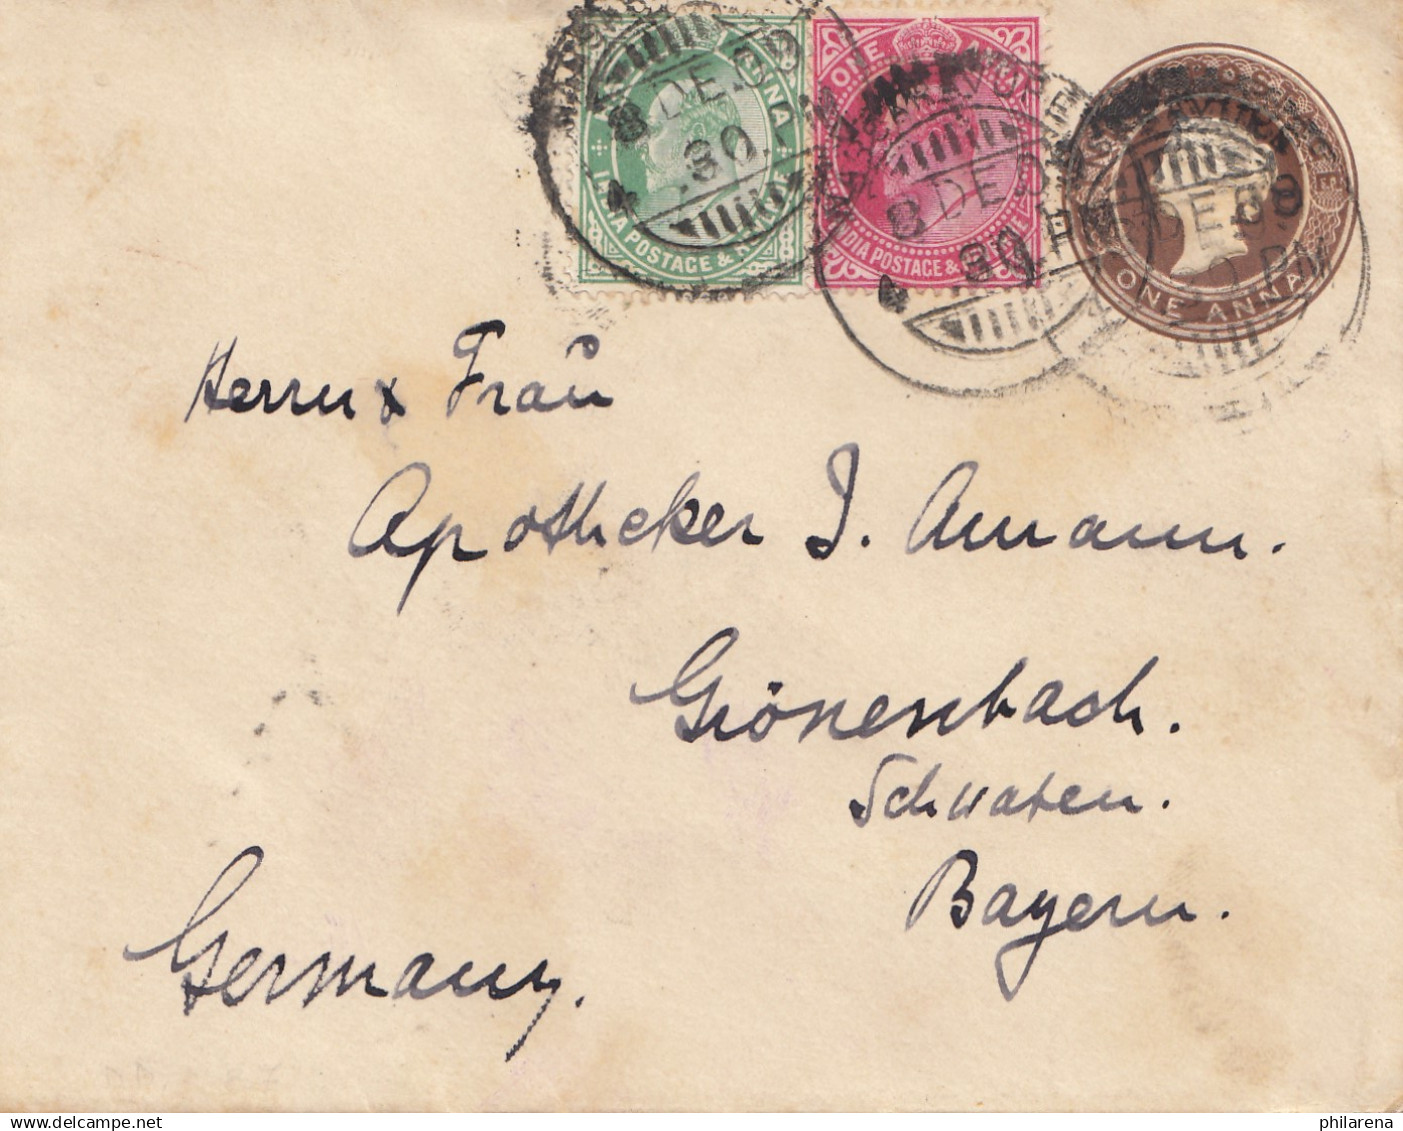 ANNA
INDIA POSTAGE &
8 DE.
.30
ONE ANNA
INDIA POSTAGE &
8 DE 09
.30 PM
DE 09
.30 PM
ONE ANNA
Herrn & Frau
Apotheker J. Amann.
Grönenbach.
Schwaben.
Bayern.
Germany.
philarena